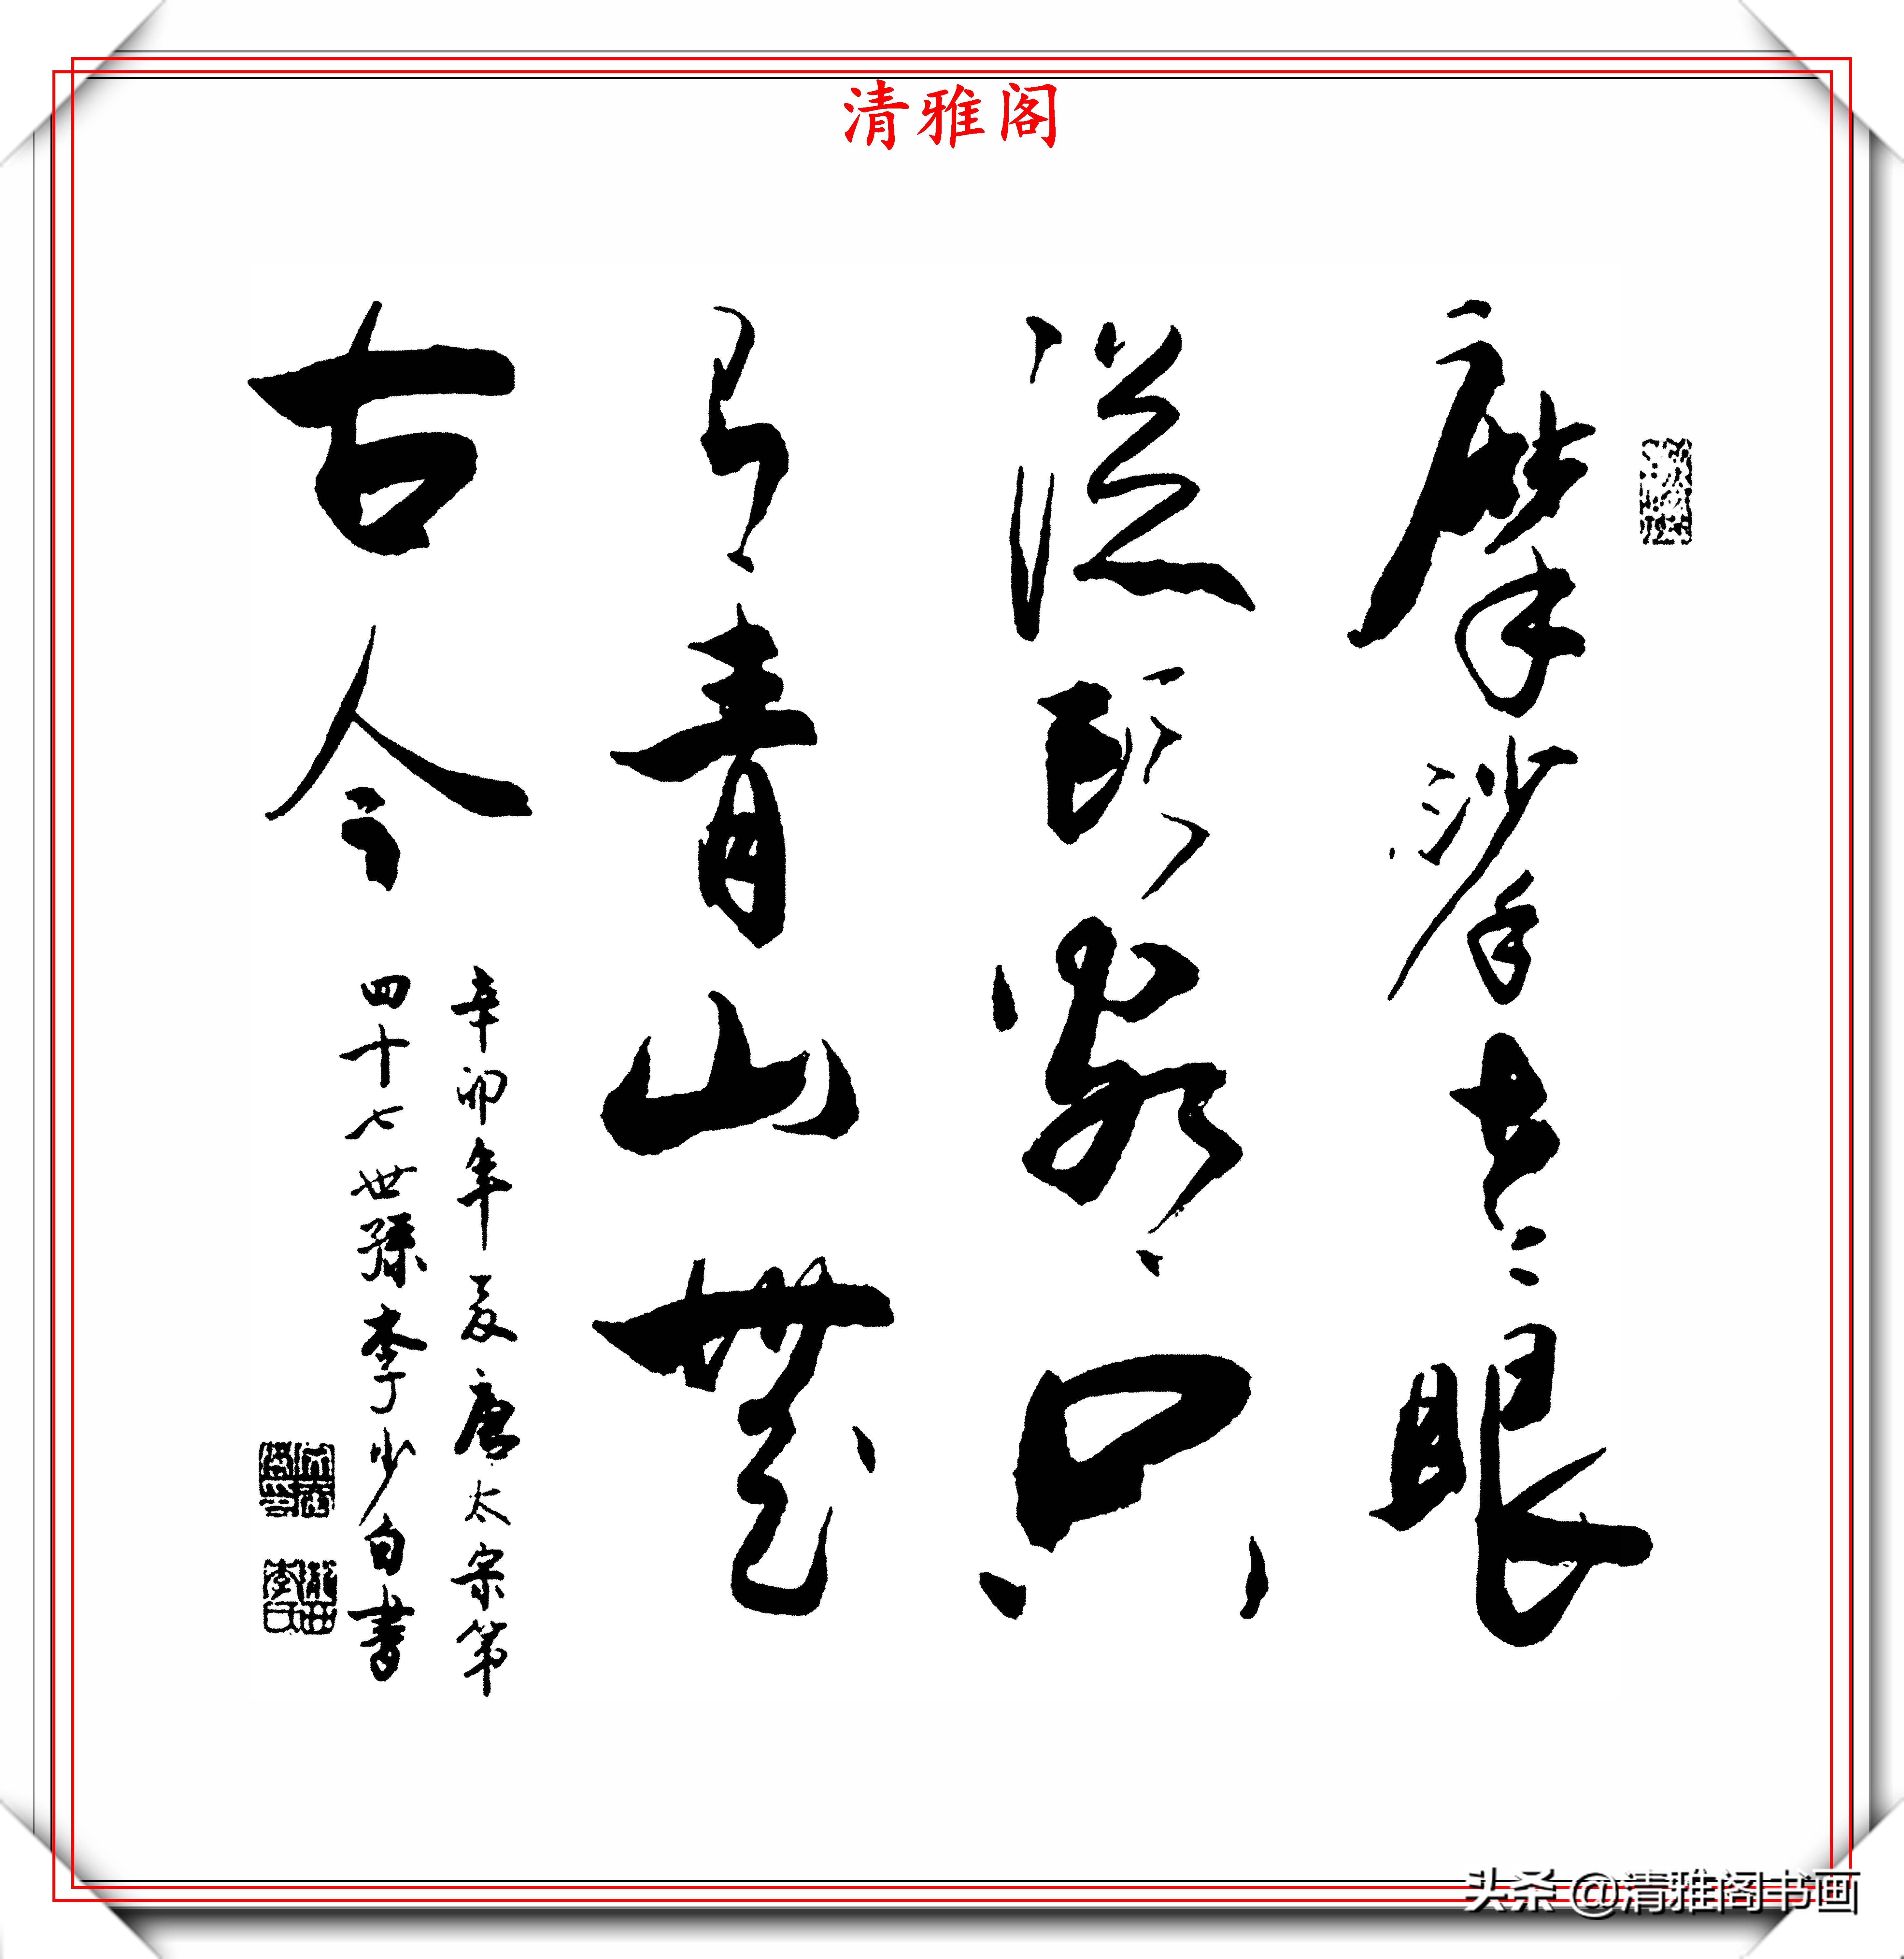 清雅阁
摩挲老眼
從頭數只
有青山無
古今
辛卯年夏唐太宗第
四十七世孫李少白書
头条 @清雅阁书画